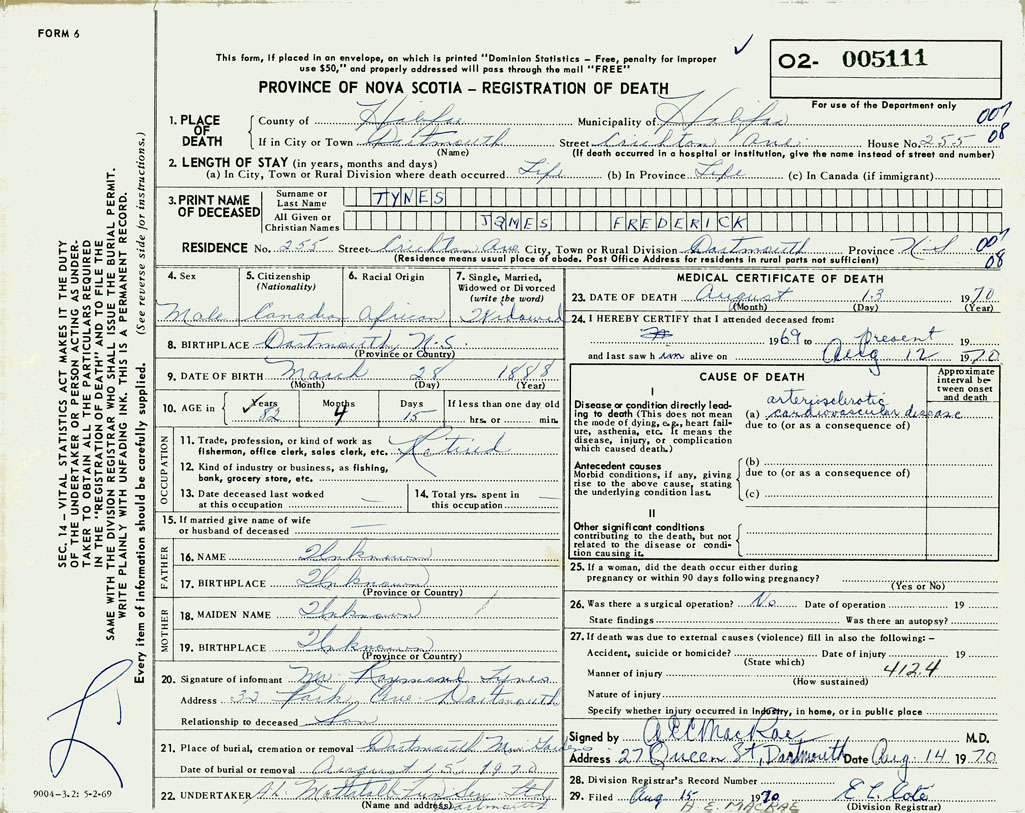 FORM 6
This form, if placed in an envelope, on which is printed "Dominion Statistics – Free, penalty for improper
use $50," and properly addressed will pass through the mail "FREE"
PROVINCE OF NOVA SCOTIA – REGISTRATION OF DEATH
O2- 005111
For use of the Department only
007
08
1. PLACE OF DEATH
County of Halifax Municipality of Halifax
If in City or Town Dartmouth Street Crichton Ave House No. 255
(Name) (If death occurred in a hospital or institution, give the name instead of street and number)
2. LENGTH OF STAY (in years, months and days)
(a) In City, Town or Rural Division where death occurred Life (b) In Province Life (c) In Canada (if immigrant)
3. PRINT NAME OF DECEASED
Surname or Last Name TYNES
All Given or Christian Names JAMES FREDERICK
RESIDENCE No. 255 Street Crichton Ave City, Town or Rural Division Dartmouth Province N.S
(Residence means usual place of abode. Post Office Address for residents in rural parts not sufficient)
007
08
4. Sex
Male
5. Citizenship (Nationality)
Canadian
6. Racial Origin
African
7. Single, Married, Widowed or Divorced (write the word)
Widowed
8. BIRTHPLACE Dartmouth N.S.
(Province or Country)
9. DATE OF BIRTH March 28 1888
(Month) (Day) (Year)
10. AGE in Years Months Days If less than one day old
82 4 15 hrs. or min.
OCCUPATION
11. Trade, profession, or kind of work as
fisherman, office clerk, sales clerk, etc. Retired
12. Kind of industry or business, as fishing,
bank, grocery store, etc.
13. Date deceased last worked
at this occupation
14. Total yrs. spent in
this occupation
15. If married give name of wife
or husband of deceased
FATHER
16. NAME Unknown
17. BIRTHPLACE Unknown
(Province or Country)
MOTHER
18. MAIDEN NAME Unknown
19. BIRTHPLACE Unknown
(Province or Country)
20. Signature of informant Mr. Raymond Tynes
Address 32 Park Ave Dartmouth
Relationship to deceased Son
21. Place of burial, cremation or removal Dartmouth Mem. Gardens
Date of burial or removal August 15 1970
22. UNDERTAKER A.L. Mattatall Fun Ser. Ltd
(Name and address) Dartmouth
MEDICAL CERTIFICATE OF DEATH
23. DATE OF DEATH August 13 1970
(Month) (Day) (Year)
24. I HEREBY CERTIFY that I attended deceased from:
1969 to present
and last saw him alive on Aug 12 1970
CAUSE OF DEATH
Approximate interval between onset and death
I
Disease or condition directly leading
to death (This does not mean
the mode of dying, e.g., heart failure,
asthenia, etc. It means the
disease, injury, or complication
which caused death.)
arteriosclerotic
(a) cardiovascular disease
due to (or as a consequence of)
Antecedent causes
Morbid conditions, if any, giving
rise to the above cause, stating
the underlying condition last.
(b)
due to (or as a consequence of)
(c)
II
Other significant conditions
contributing to the death, but not
related to the disease or condition
causing it.
25. If a woman, did the death occur either during
pregnancy or within 90 days following pregnancy?
(Yes or No)
26. Was there a surgical operation? No Date of operation 19
State findings Was there an autopsy?
27. If death was due to external causes (violence) fill in also the following: –
Accident, suicide or homicide? Date of injury 19
(State which)
Manner of injury 412.4
(How sustained)
Nature of injury
Specify whether injury occurred in industry, in home, or in public place
Signed by A E C MacRae M.D.
Address 27 Queen St, Dartmouth Date Aug. 14 1970
28. Division Registrar's Record Number
29. Filed Aug 15 1970 E L Cote
A. E. MACRAE (Division Registrar)
SEC. 14 – VITAL STATISTICS ACT MAKES IT THE DUTY
OF THE UNDERTAKER OR PERSON ACTING AS UNDER-
TAKER TO OBTAIN ALL THE PARTICULARS REQUIRED
IN THE "REGISTRATION OF DEATH" AND TO FILE THE
SAME WITH THE DIVISION REGISTRAR WHO SHALL ISSUE THE BURIAL PERMIT.
WRITE PLAINLY WITH UNFADING INK. THIS IS A PERMANENT RECORD.
Every item of information should be carefully supplied. (See reverse side for instructions.)
9004-3.2: 5-2-69